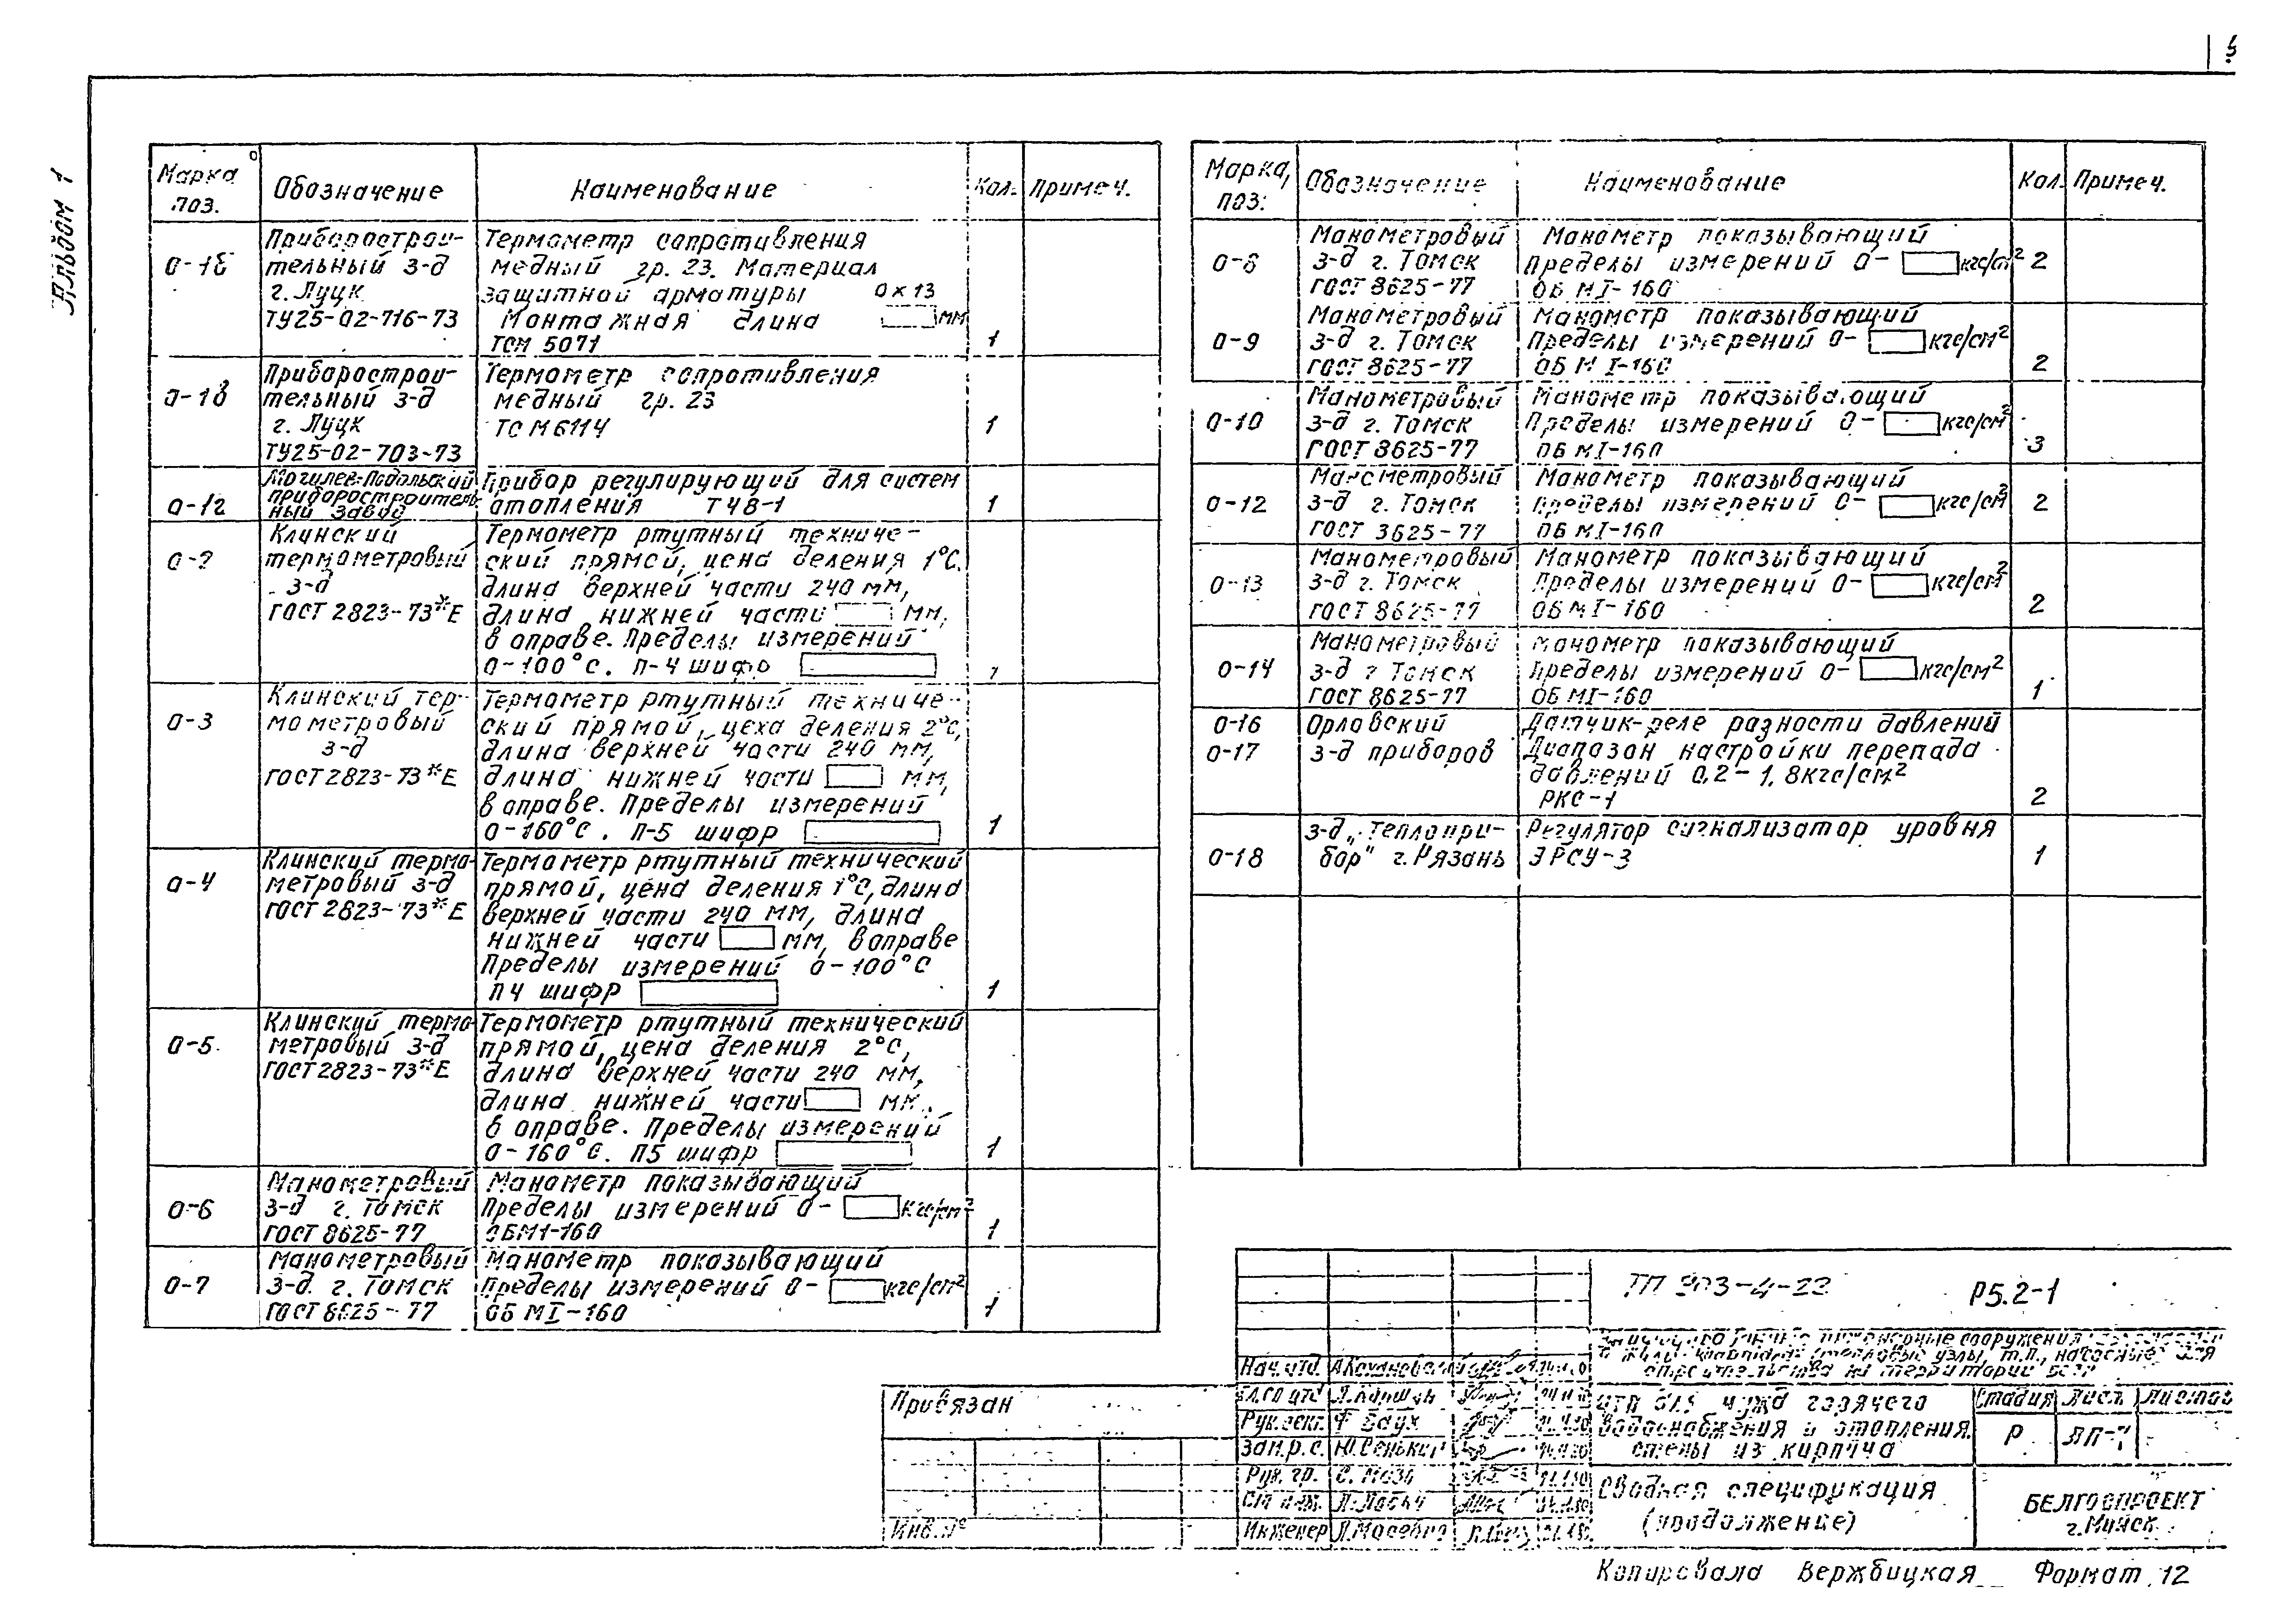 Альбом 1
Марка
поз.
Обозначение
Наименование
Кол.
Примеч.
0-1б
Приборострои-
тельный з-д
г. Луцк
ТУ25-02-716-73
Термометр сопротивления
медный гр. 23. Материал
защитной арматуры 0×13
Монтажная длина мм
ТСМ 5071
1
0-1в
Приборострои-
тельный з-д
г. Луцк
ТУ25-02-703-73
Термометр сопротивления
медный гр. 23
ТСМ6114
1
0-1г
Могилев-Подольский
приборостроитель-
ный завод
Прибор регулирующий для систем
отопления Т48-1
1
0-2
Клинский
термометровый
з-д
ГОСТ 2823-73*Е
Термометр ртутный техниче-
ский прямой, цена деления 1°С.
длина верхней части 240 мм,
длина нижней части мм,
в оправе. Пределы измерений
0-100°С. П-4 шифр
1
0-3
Клинский тер-
мометровый
з-д
ГОСТ2823-73*Е
Термометр ртутный техниче-
ский прямой, цеха деления 2°С,
длина верхней части 240 мм,
длина нижней части мм,
в оправе. Пределы измерений
0-160°С. П-5 шифр
1
0-4
Клинский термо-
метровый з-д
ГОСТ 2823-73*Е
Термометр ртутный технический
прямой, цена деления 1°С, длина
верхней части 240 мм, длина
нижней части мм, в оправе
Пределы измерений 0-100°С
П4 шифр
1
0-5
Клинский термо-
метровый з-д
ГОСТ2823-73*Е
Термометр ртутный технический
прямой, цена деления 2°С,
длина верхней части 240 мм,
длина нижней части мм.
в оправе. Пределы измерений
0-160°С. П5 шифр
1
0-6
Манометровый
з-д г. Томск
ГОСТ 8625-77
Манометр показывающий
Пределы измерений 0- кгс/см²
ОБМ1-160
1
0-7
Манометровый
з-д. г. Томск
ГОСТ 8625-77
Манометр показывающий
Пределы измерений 0- кгс/см²
ОБ МI-160
1
Марка,
поз.
Обозначение
Наименование
Кол.
Примеч.
0-8
Манометровый
з-д г. Томск
ГОСТ 8625-77
Манометр показывающий
Пределы измерений 0- кгс/см²
ОБ МI-160
2
0-9
Манометровый
з-д г. Томск
ГОСТ 8625-77
Манометр показывающий
Пределы измерений 0- кгс/см²
ОБ МI-160
2
0-10
Манометровый
з-д г. Томск
ГОСТ 8625-77
Манометр показывающий
Пределы измерений 0- кгс/см²
ОБ МI-160
3
0-12
Манометровый
з-д г. Томск
ГОСТ 8625-77
Манометр показывающий
Пределы измерений 0- кгс/см²
ОБ МI-160
2
0-13
Манометровый
з-д г. Томск
ГОСТ 8625-77
Манометр показывающий
Пределы измерений 0- кгс/см²
ОБ МI-160
2
0-14
Манометровый
з-д г Томск
ГОСТ 8625-77
Манометр показывающий
Пределы измерений 0- кгс/см²
ОБ МI-160
1
0-16
0-17
Орловский
з-д приборов
Датчик-реле разности давлений
Диапазон настройки перепада
давлений 0,2-1,8кгс/см²
РКС-1
2
0-18
з-д „Теплопри-
бор" г. Рязань
Регулятор сигнализатор уровня
ЭРСУ-3
1
Привязан
Инв.№
Нач. отд
Рук. сект.
Рук. гр.
С. Мазо
Инженер
ТП 903-4-22
Р5.2-1
инженерные сооружения
узлы, т.п., насосные для
строительства на территории БССР
ЦТП для нужд горячего
водоснабжения и отопления.
стены из кирпича
Стадия
Лист
Листов
Р
Сводная спецификация
(продолжение)
БЕЛГОСПРОЕКТ
г.Минск
Копировала Вержбицкая
Формат 12